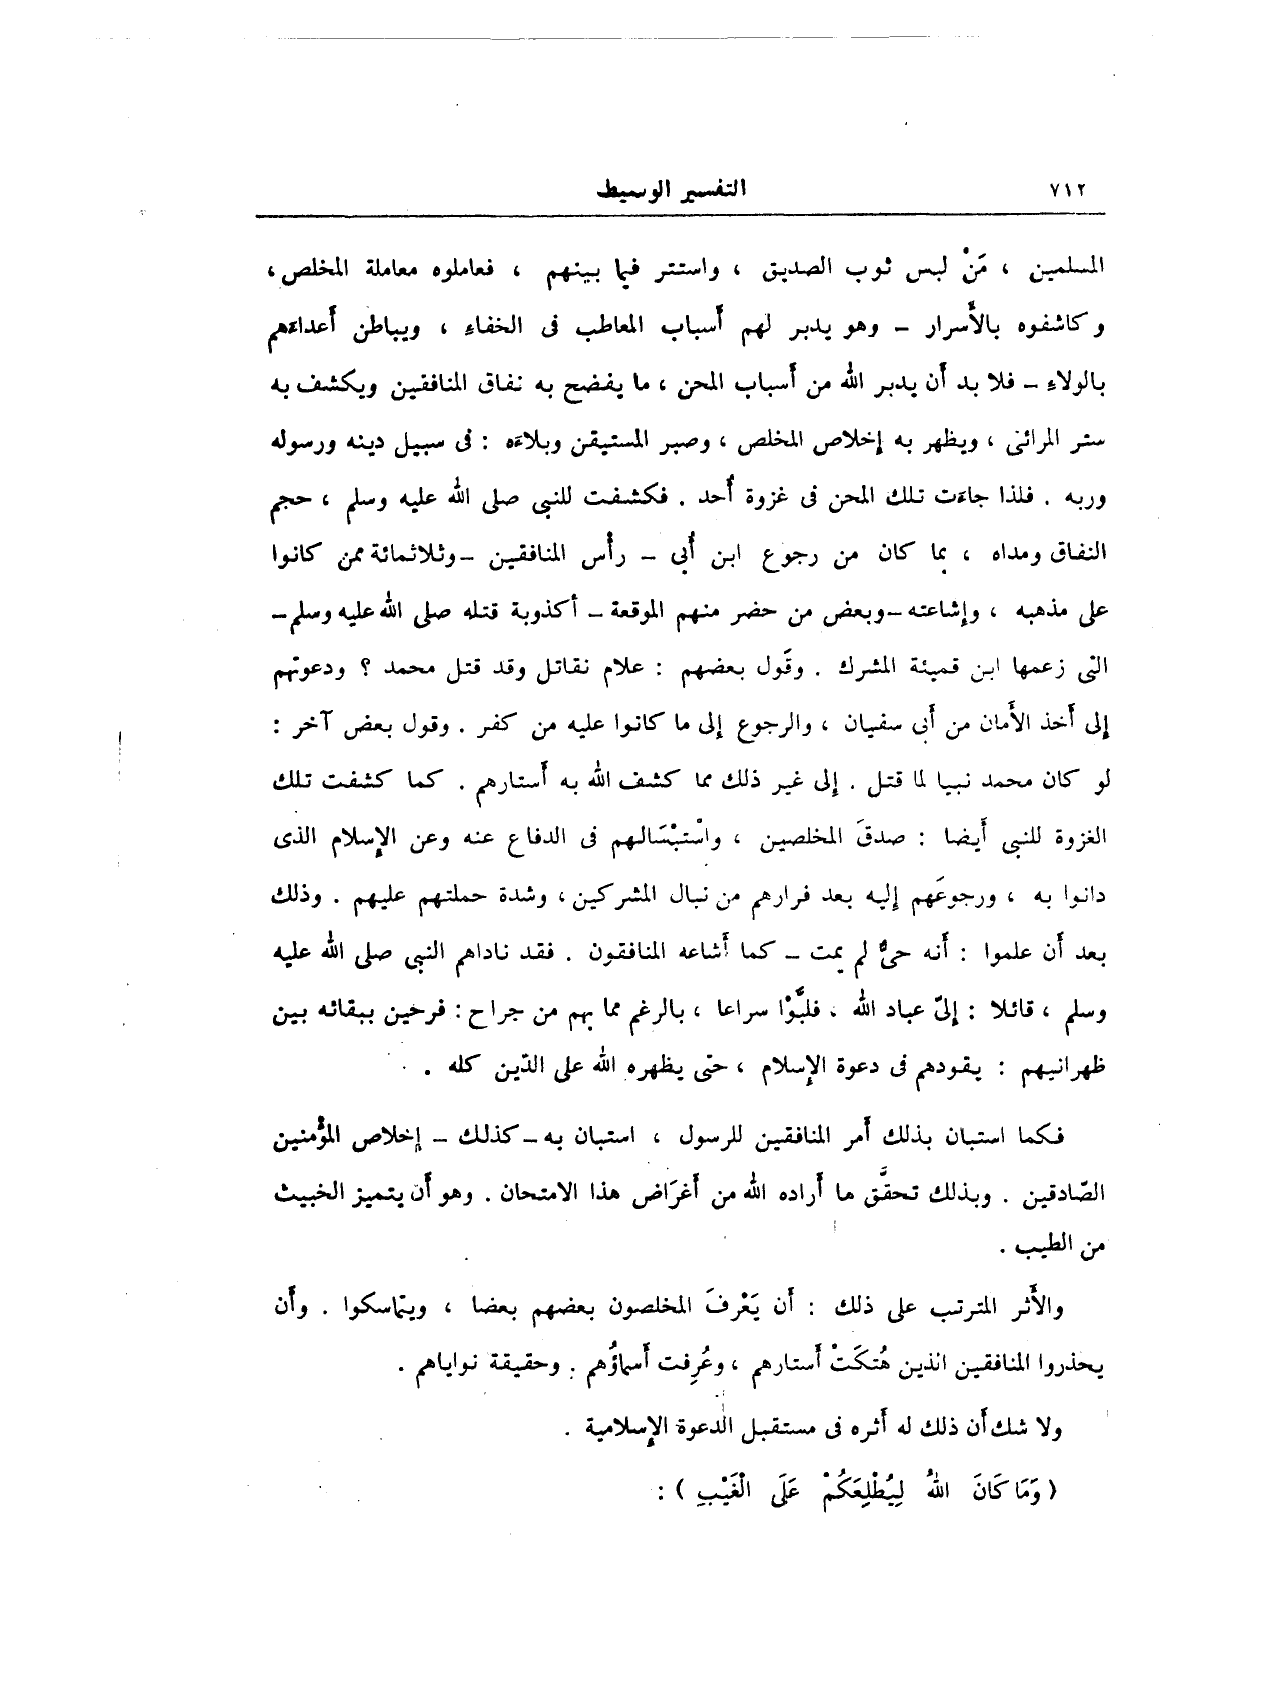 ٧١٢
التفسير الوسيط
المسلمين ، مَنْ لبس ثوب الصديق ، واستتر فيما بينهم ، فعاملوه معاملة المخلص ،
وكاشفوه بالأَسرار – وهو يدبر لهم أَسباب المعاطب فى الخفاءِ ، ويباطن أَعداءَهم
بالولاءِ – فلا بد أَن يدبر الله من أَسباب المحن ، ما يفضح به نفاق المنافقين ويكشف به
ستر المرائى ، ويظهر به إخلاص المخلص ، وصبر المستيقن وبلاءَه : فى سبيل دينه ورسوله
وربه . فلذا جاءَت تلك المحن فى غزوة أُحد . فكشفت للنبى صلى الله عليه وسلم ، حجم
النفاق ومداه ، بما كان من رجوع ابن أُبى – رأْس المنافقين – وثلاثمائة ممن كانوا
على مذهبه ، وإشاعته – وبعض من حضر منهم الموقعة – أكذوبة قتله صلى الله عليه وسلم –
التى زعمها ابن قميئة المشرك . وقَول بعضهم : علام نقاتل وقد قتل محمد ؟ ودعوتهم
إلى أَخذ الأَمان من أَبى سفيان ، والرجوع إلى ما كانوا عليه من كفر . وقول بعض آخر :
لو كان محمد نبيا لما قتل . إلى غير ذلك مما كشف الله به أَستارهم . كما كشفت تلك
الغزوة للنبى أَيضا : صدقَ المخلصين ، واسْتِبْسَالهم فى الدفاع عنه وعن الإسلام الذى
دانوا به ، ورجوعَهم إليه بعد فرارهم من نبال المشركين ، وشدة حملتهم عليهم . وذلك
بعد أَن علموا : أَنه حىٌّ لم يمت – كما أَشاعه المنافقون . فقد ناداهم النبى صلى الله عليه
وسلم ، قائلا : إلىّ عباد الله . فلبَّوْا سراعا ، بالرغم مما بهم من جراح : فرحين ببقائه بين
ظهرانيهم : يقودهم فى دعوة الإسلام ، حتى يظهره الله على الدّين كله .
فكما استبان بذلك أَمر المنافقين للرسول ، استبان به – كذلك – إخلاص المؤْمنين
الصّادقين . وبذلك تحقَّق ما أَراده الله من أَغرَاض هذا الامتحان . وهو أَن يتميز الخبيث
من الطيب .
والأَثر المترتب على ذلك : أَن يَعْرفَ المخلصون بعضهم بعضا ، ويتماسكوا . وأَن
يحذروا المنافقين الذين هُتكَتْ أَستارهم ، وعُرِفت أَسماؤُهم . وحقيقة نواياهم .
ولا شك أَن ذلك له أَثره فى مستقبل الدعوة الإسلامية .
( وَمَا كَانَ اللهُ لِيُطْلِعَكُمْ عَلَى الْغَيْبِ ) :